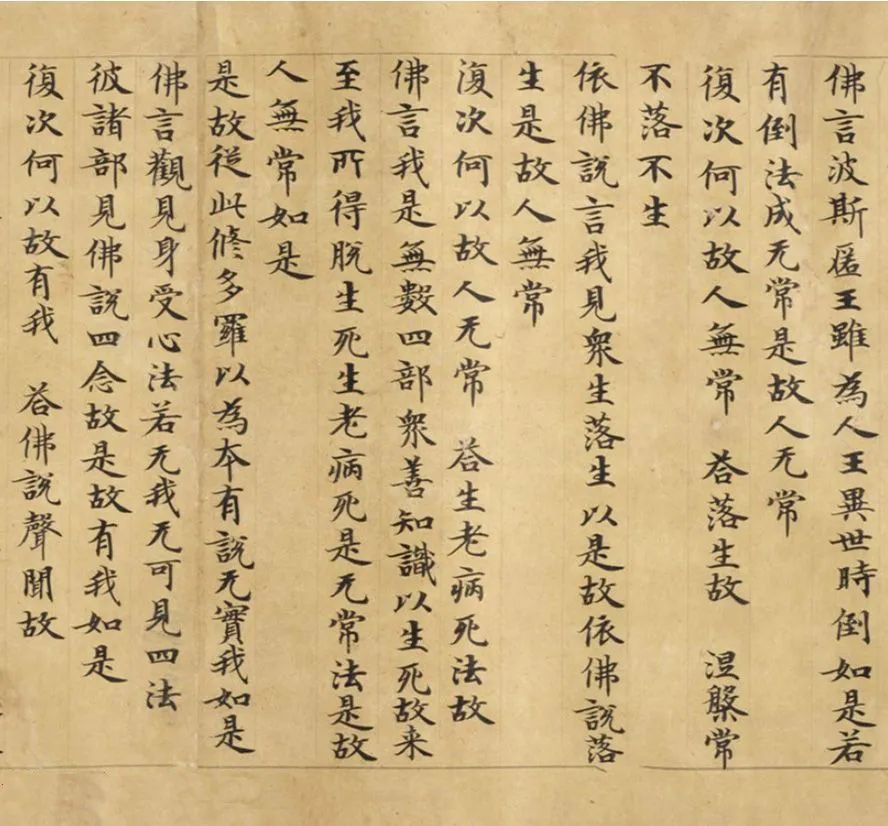 佛言波斯匿王雖為人王異世時倒如是若
有倒法成无常是故人无常
復次何以故人無常　荅落生故　涅槃常
不落不生
依佛說言我見衆生落生以是故依佛說落
生是故人無常
復次何以故人无常　荅生老病死法故
佛言我是無數四部衆善知識以生死故来
至我所得脫生死生老病死是无常法是故
人無常如是
是故從此修多羅以為本有說无實我如是
佛言觀見身受心法若无我无可見四法
彼諸部見佛說四念故是故有我如是
復次何以故有我　荅佛說聲聞故